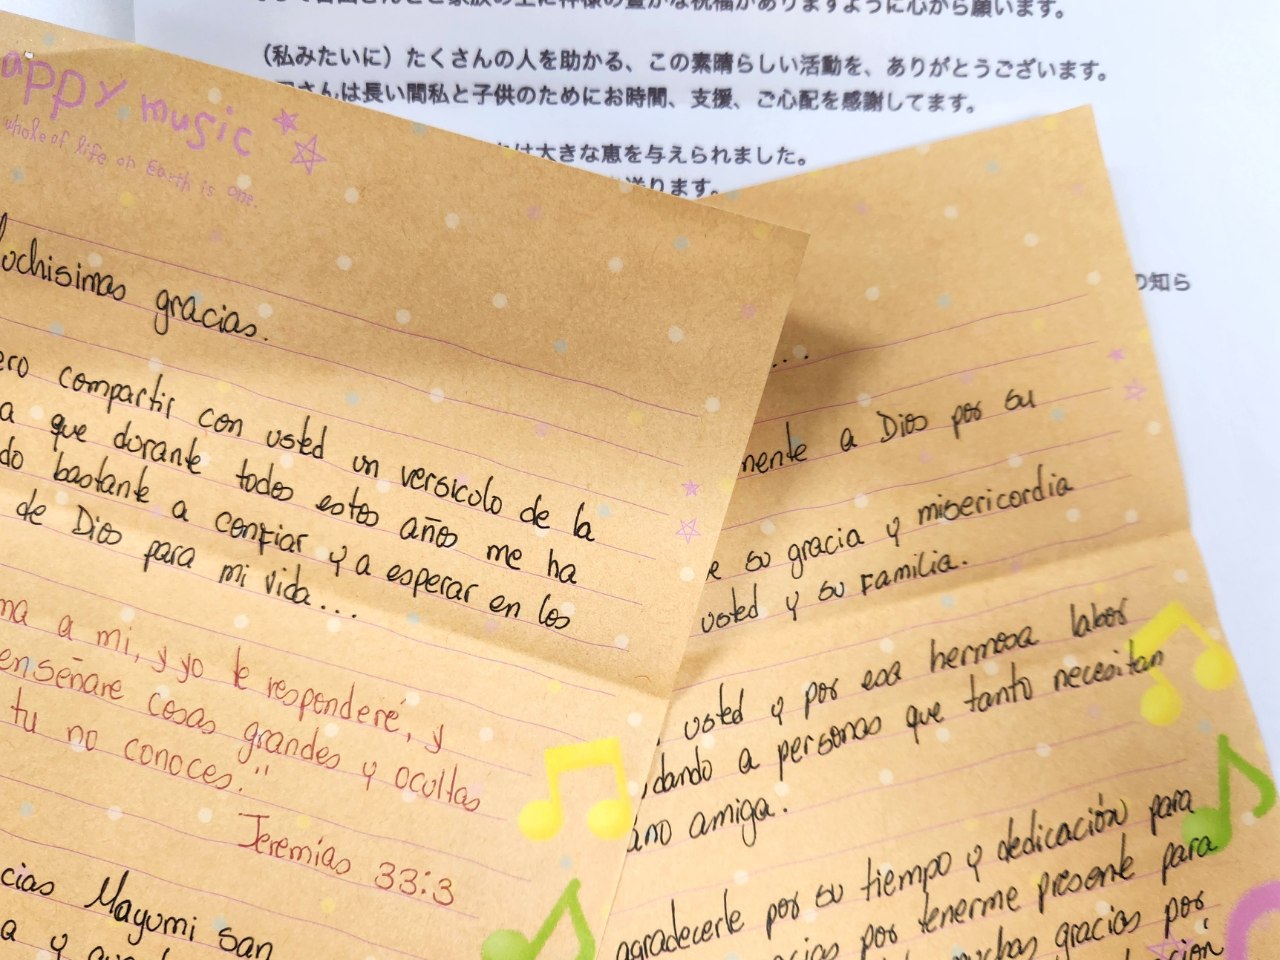 (私みたいに）たくさんの人を助かる、この素晴らしい活動を、ありがとうございます。
さんは長い間私と子供のためにお時間、支援、ご心配を感謝してます。
は大きな恵を与えられました。
送ります。
の知ら
appy music
whole of life on Earth is one.
uchisimas gracias.
ero compartir con usted un versiculo de la
a que durante todos estos años me ha
do bastante a confiar y a esperar en los
de Dios para mi vida...
ma a mi, y yo te responderé, y
enseñare cosas grandes y ocultas
tu no conoces."
Jeremías 33:3
cias Mayumi san
a y
...
mente a Dios por su
e su gracia y misericordia
usted y su Familia.
usted y por esa hermosa labor
dando a personas que tanto necesitan
ano amiga.
agradecerle por su tiempo y dedicación para
cias por tenerme presente para
muchas gracias por